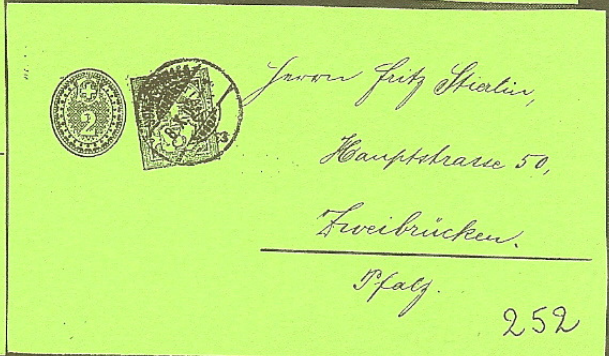 2
Herrn Fritz Stierlin,
Hauptstrasse 50,
Zweibrücken.
Pfalz.
252